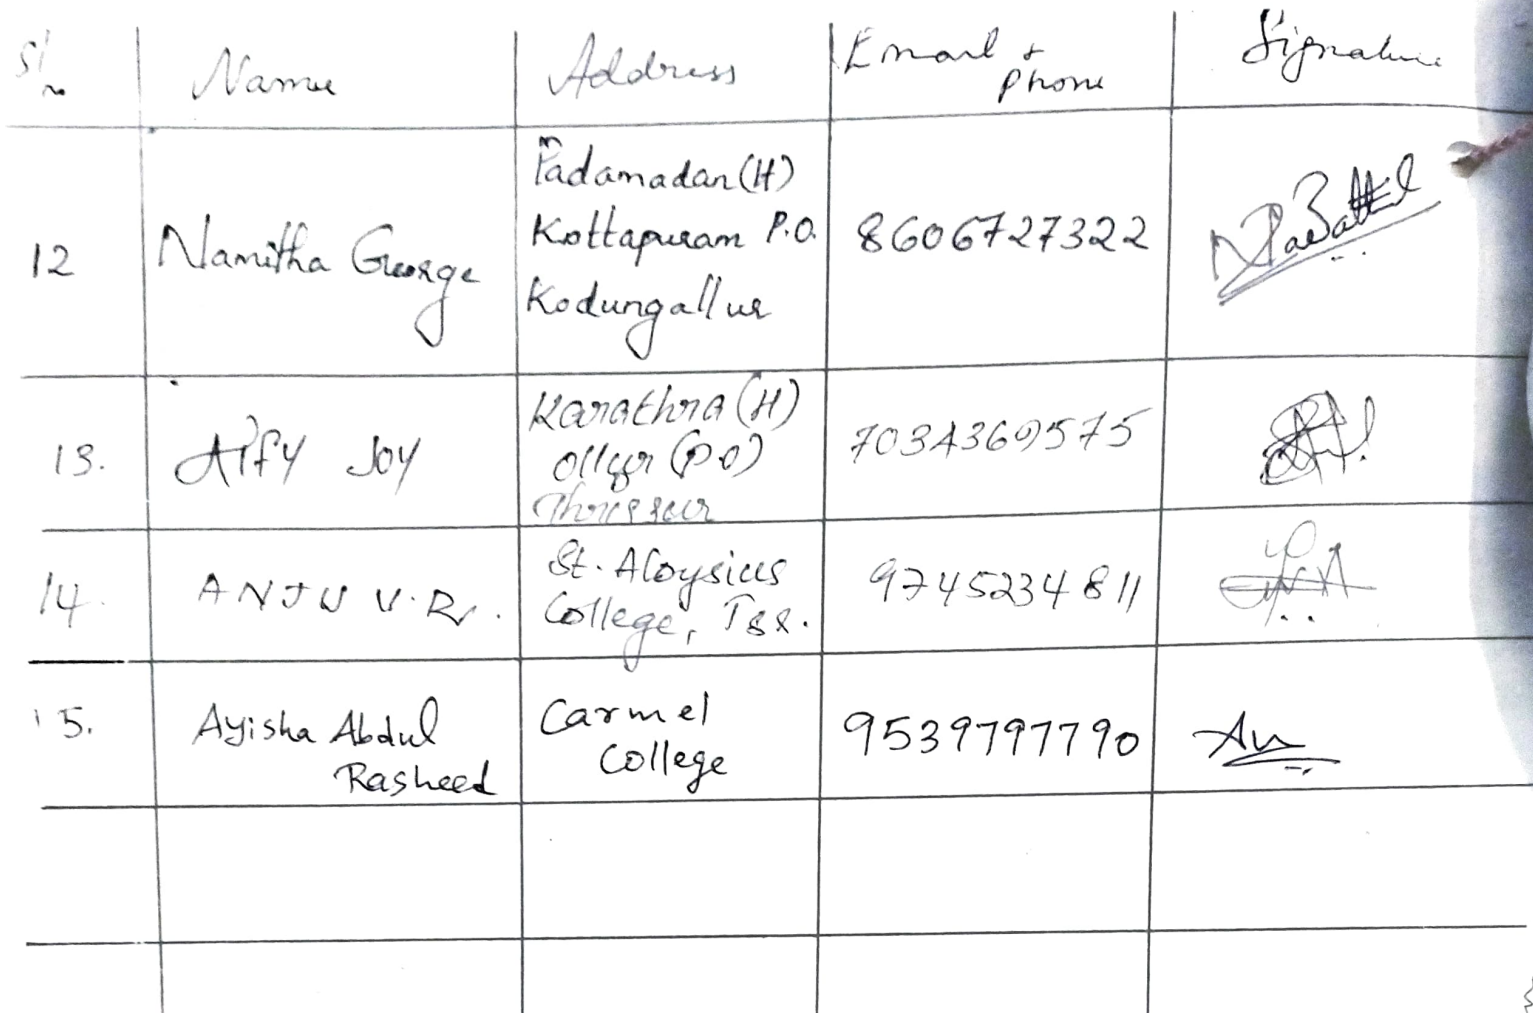 Sl no Name Address Email & Phone Signature
12 Namitha George Padamadan (H) Kottapuram P.O. Kodungallur 8606727322
13. Alfy Joy Karathra (H) Ollur (P.O) Thrissur 7034369575
14. ANJU V.R. St. Aloysius College, Tsr. 9745234811
15. Ayisha Abdul Rasheed Carmel College 9539797790